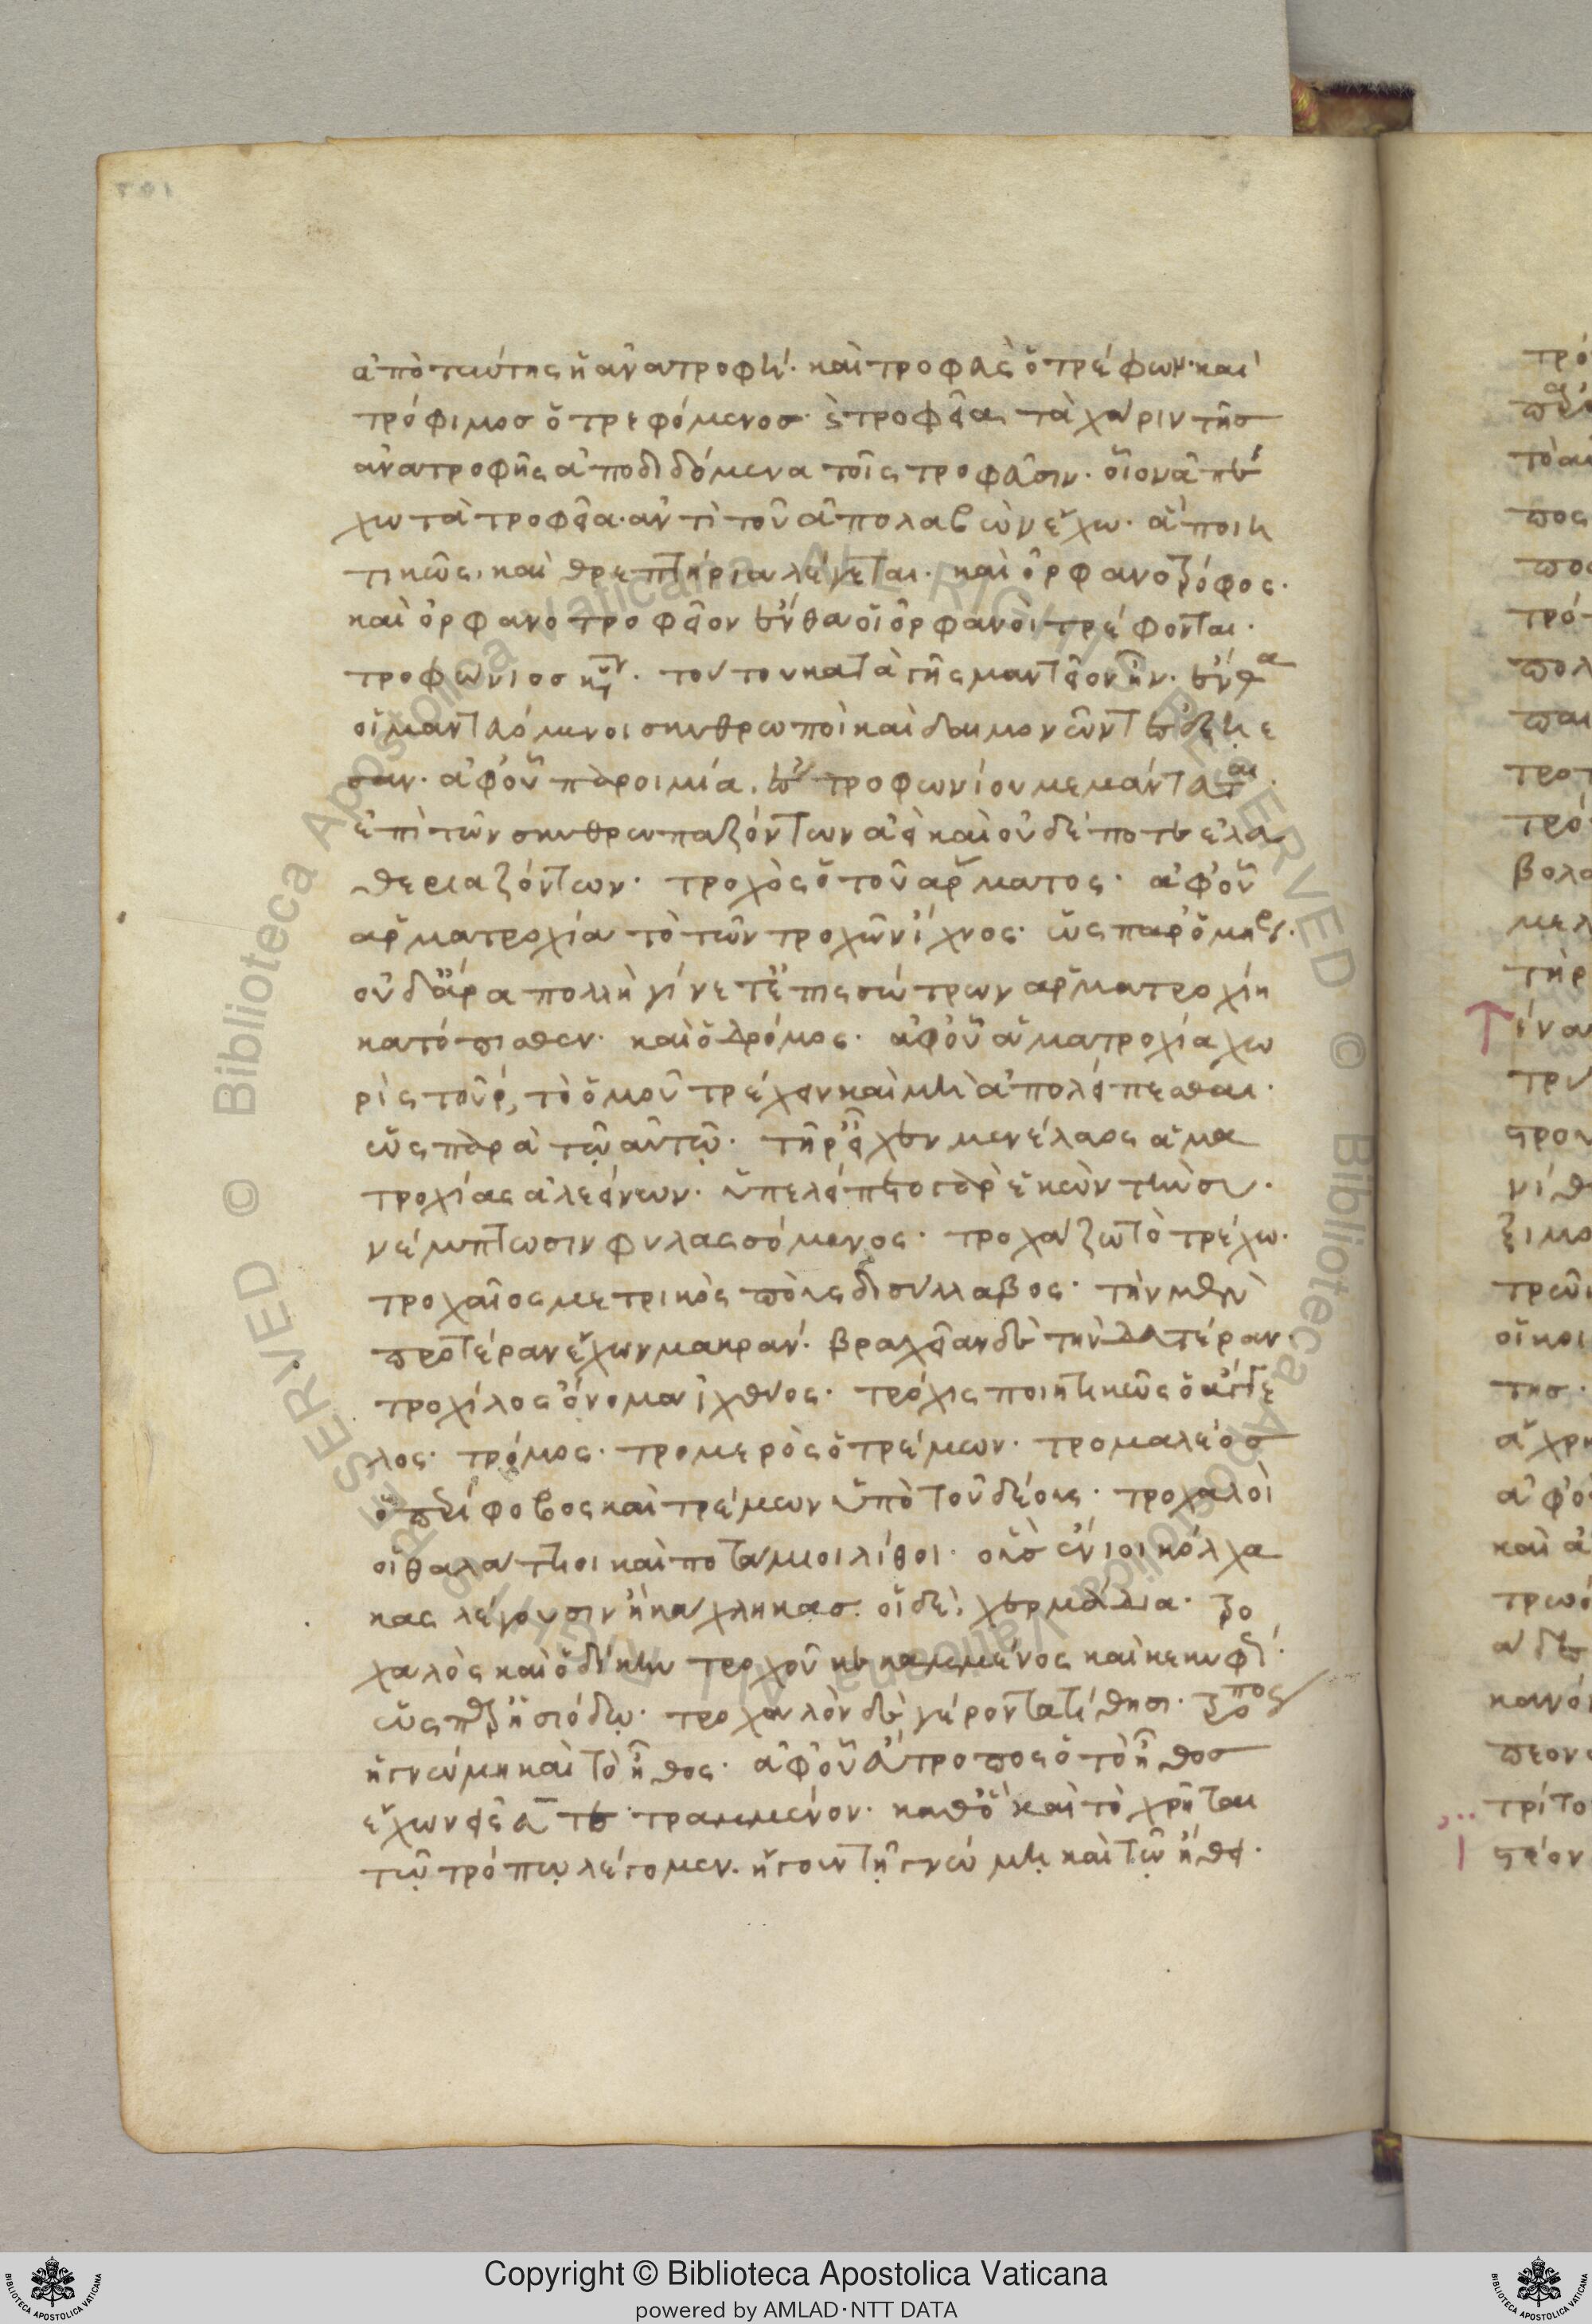 ἀπὸ ταύτης ἡ ἀνατροφή· καὶ τροφεὺς ὁ τρέφων· καὶ
τρόφιμος ὁ τρεφόμενος· ϛ τροφεῖα τὰ χάριν τῆς
ἀνατροφῆς ἀποδιδόμενα τοῖς τροφεῦσιν· οἷον ἀπέ
χω τὰ τροφεῖα· ἀντὶ τοῦ ἀπολαβὼν ἔχω· ἃ ποιη
τικῶς, καὶ θρεπτήρια λέγεται· καὶ ὀρφανοτρόφος·
καὶ ὀρφανοτροφεῖον ἔνθα οἱ ὀρφανοὶ τρέφονται·
τροφώνιος· τούτου κατὰ γῆς μαντεῖον ἦν· ἔνθα
οἱ μαντευόμενοι σκυθρωποὶ καὶ δαιμονῶντες
σαν· ἀφ' οὗ παροιμία, τροφωνίου μεμάντευται·
ἐπὶ τῶν σκυθρωπαζόντων ἀεὶ καὶ οὐδέποτε ἐλευ
θεριαζόντων· τροχὸς ὁ τοῦ ἅρματος· ἀφ' οὗ
ἁρματροχία τὸ τῶν τροχῶν ἴχνος· ὡς παρ' ὁμήρῳ·
οὐδ' ἄρα πολλὴ γίνετ' ἐπισσώτρων ἁρματροχίη
κατόπισθεν· καὶ ὁ δρόμος· ἀφ' οὗ ἁματροχία χω
ρὶς τοῦ ρ, τὸ ὁμοῦ τρέχειν καὶ μὴ ἀπολείπεσθαι·
ὡς παρὰ τῷ αὐτῷ· τῇ ῥ' εἶχεν μενέλαος ἁμα
τροχίας ἀλεείνων· ὑπελείπετο γὰρ ἑκὼν τὴν συ·
νέμπτωσιν φυλασσόμενος· τροχάζω τὸ τρέχω·
τροχαῖος μετρικὸς ποὺς δισύλλαβος· τὴν μὲν
προτέραν ἔχων μακράν· βραχεῖαν δὲ τὴν δευτέραν·
τροχίλος ὄνομα ἰχθύος· τρόχις ποιητικῶς ὁ ἄγγε
λος· τρόμος· τρομερὸς ὁ τρέμων· τρομαλέος
ὁ περίφοβος καὶ τρέμων ὑπὸ τοῦ δέους· τροχαλοὶ
οἱ θαλάττιοι καὶ ποτάμιοι λίθοι· οὓς ἔνιοι κόλχα
κας λέγουσιν ἢ κάχληκας· οἱ δὲ, χερμάδια· τρο
χαλὸς καὶ ὁ δίκην τροχοῦ κεκαμμένος καὶ κεκυφώς·
ὡς παρ' ἡσιόδῳ· τροχαλὸν δὲ γέροντα τίθησι· τρόπος
ἡ γνώμη καὶ τὸ ἦθος· ἀφ' οὗ εὔτροπος ὁ τὸ ἦθος
ἔχων εἰς εὖ τετραμμένον· καθ' ὃ καὶ τὸ χρῆται
τῷ τρόπῳ λέγομεν· ἤγουν τῇ γνώμῃ καὶ τῷ ἤθει·
Copyright © Biblioteca Apostolica Vaticana
powered by AMLAD·NTT DATA